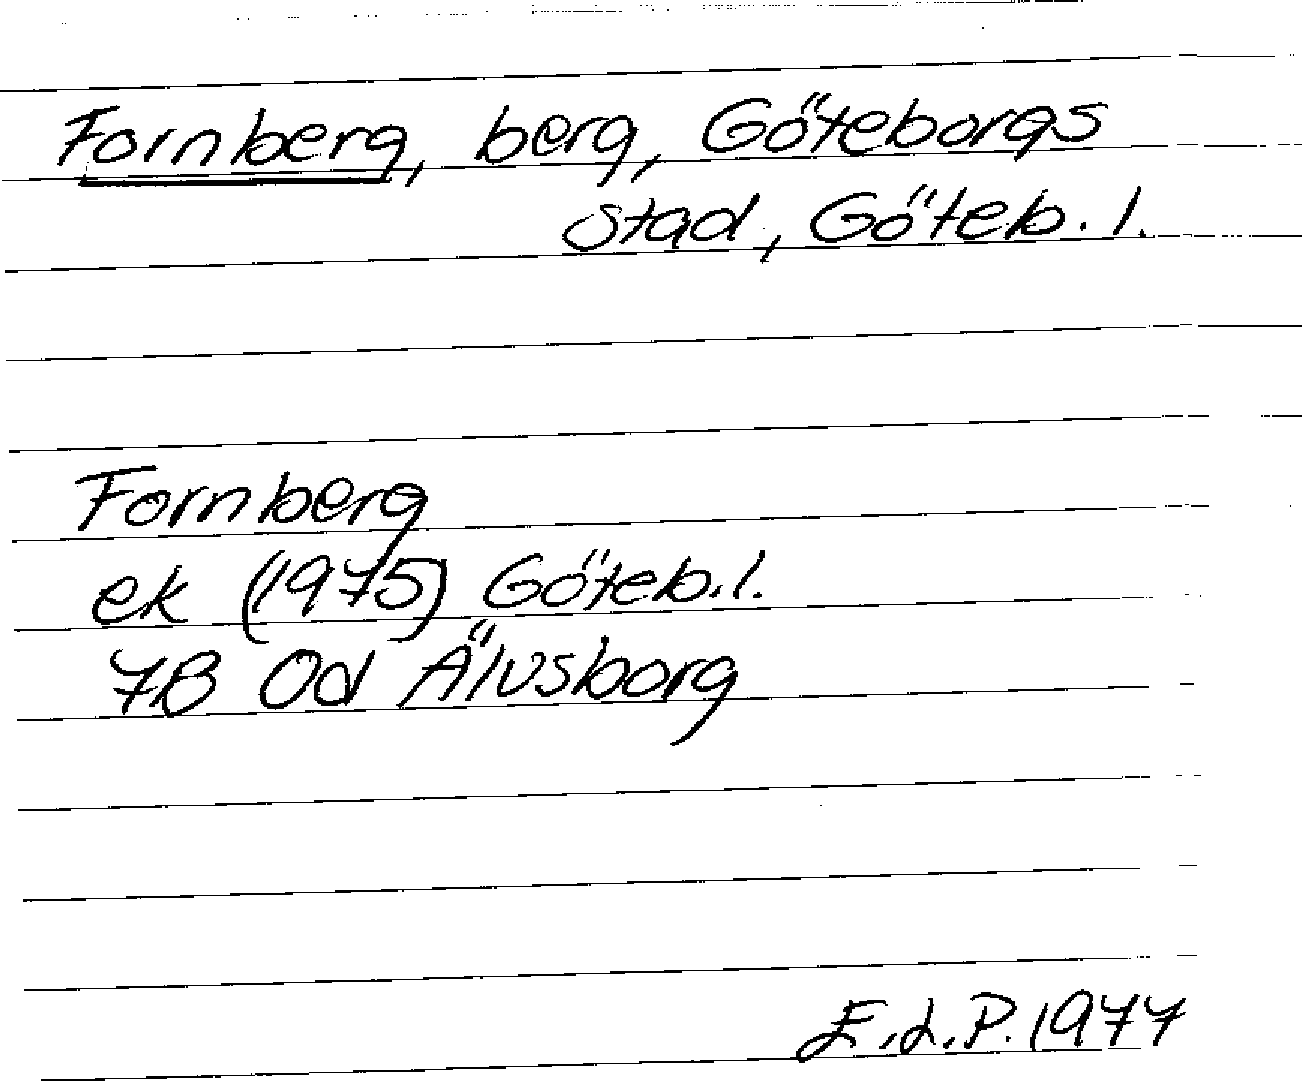 Fornberg, berg, Göteborgs
stad, Göteb. l.
Fornberg
ek (1975) Göteb.l.
7B 0d Älvsborg
E.L.P. 1977